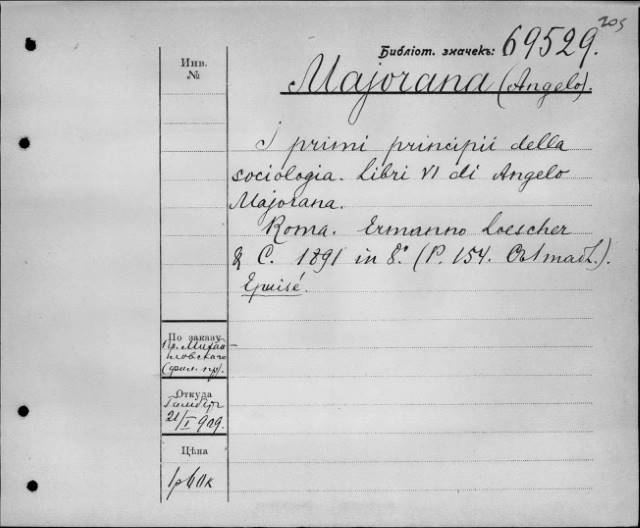 205
Библіот. значекъ: 69529.
Инв.
№
Majorana (Angelo).
I primi principii della
sociologia. Libri VI di Angelo
Majorana.
Roma. Ermanno Loescher
& C. 1891 in 8°. (P. 154.
Epuisé.
По заказу
Пр. Михай-
ловскаго
Откуда
21/I 909.
Цѣна
1р 60к